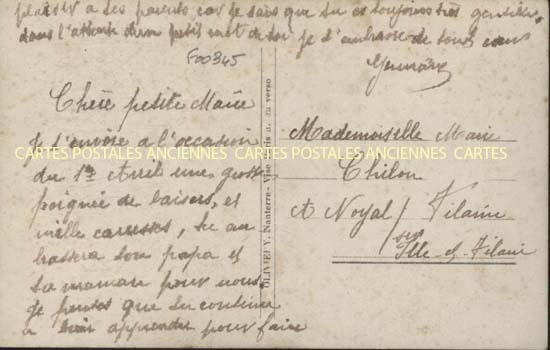 Chère petite Marie
je t'envoie a l'occasion
du 1er Avril une grosse
poignée de baisers, et
mille caresses, tu
ton papa et
ta maman pour nous.
Je penses que tu continue
a bien apprendre pour faire
plaisir a tes parents car je sais que tu es toujours très gentille.
dans l'attente d'un petit mot de toi je t'embrasse de tout cœur
Germaine
F00345
OLIVIER, Nanterre - Vise Paris n. au verso
Mademoiselle Marie
A Noyal / Vilaine
sur
Ille-et-Vilaine
CARTES POSTALES ANCIENNES CARTES POSTALES ANCIENNES CARTES